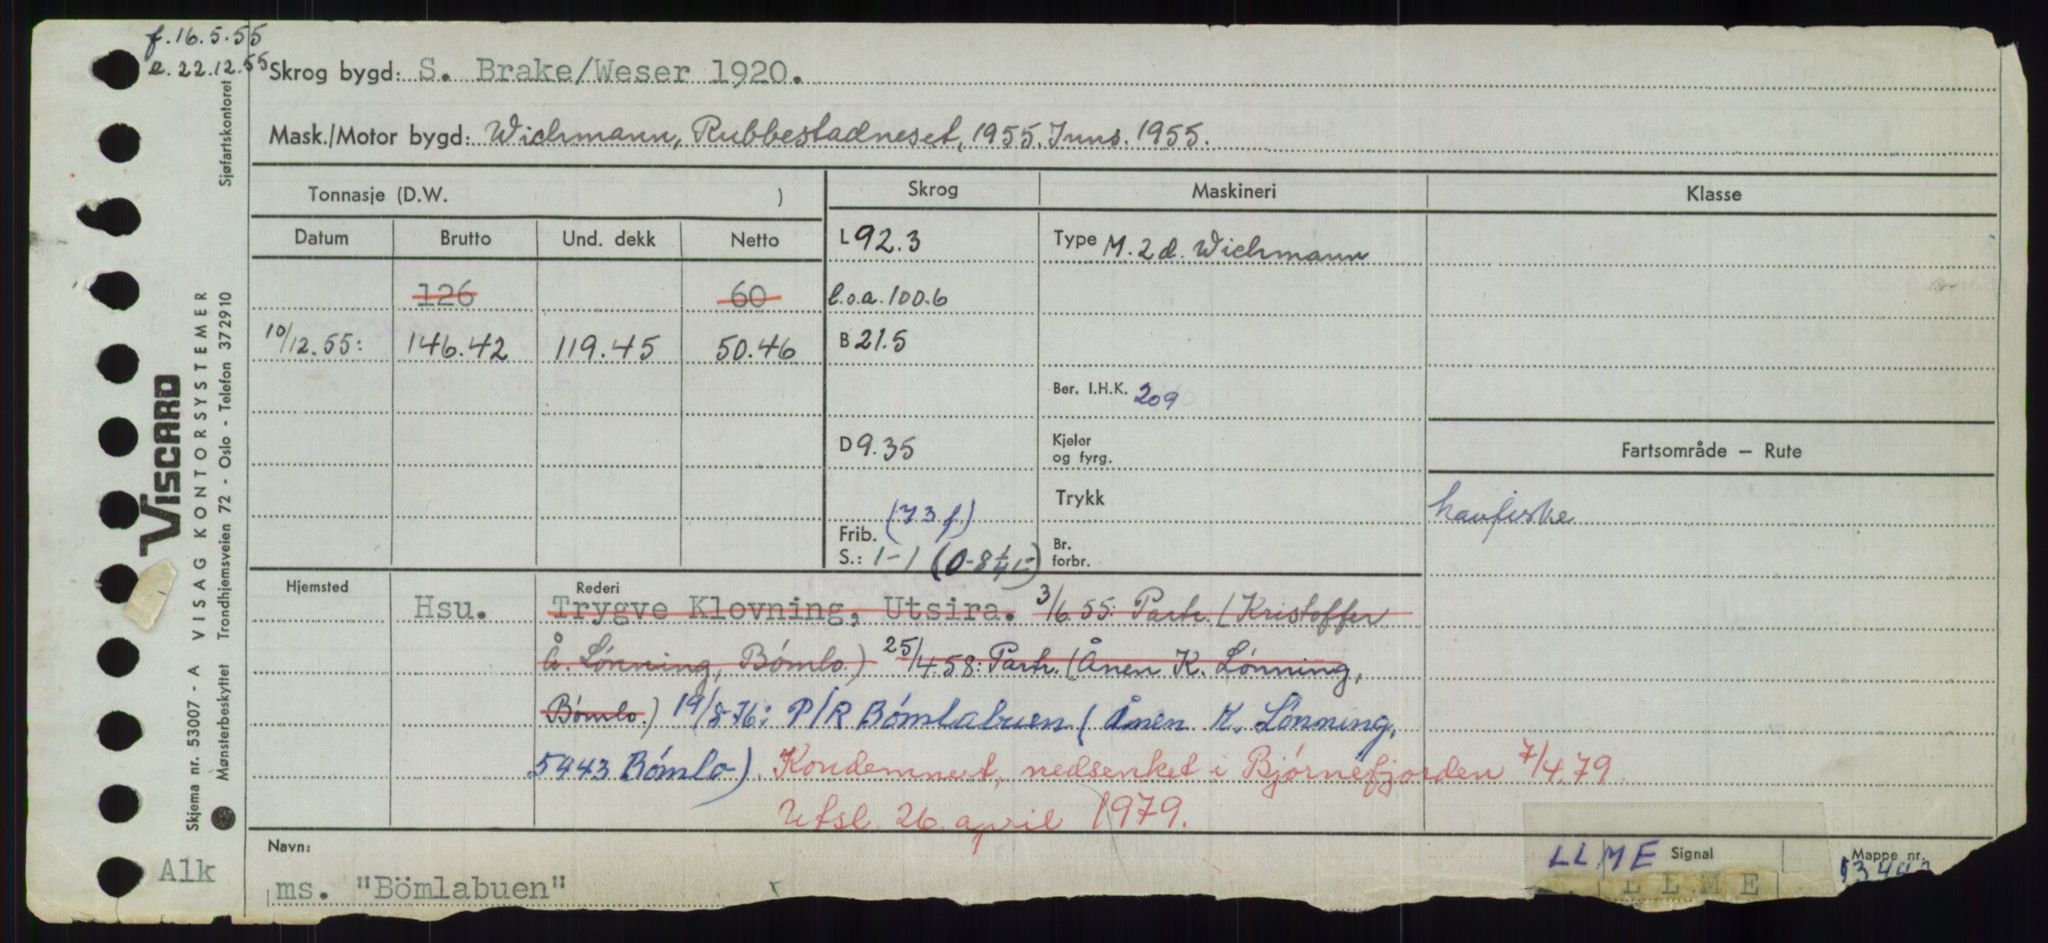 f. 16.5.55
e. 22.12.55
Skrog bygd: S. Brake/Weser 1920.
Mask./Motor bygd: Wichmann, Rubbestadneset, 1955. Inns. 1955.
Tonnasje (D.W. ) Skrog Maskineri Klasse
Datum Brutto Und. dekk Netto L 92.3 Type M. 2 d. Wichmann
126 60 l.o.a. 100.6
10/12.55: 146.42 119.45 50.46 B 21.5
Ber. I.H.K. 209
D 9.35 Kjeler og fyrg. Fartsområde – Rute
Trykk havfiske
(73 f.)
Frib.
S.: 1-1 Br. forbr.
Hjemsted Rederi
Hsu. Trygve Klovning, Utsira. 3/6.55: Partr. (Kristoffer
Å. Lønning, Bømlo.) 25/4.58: Partr. (Ånen K. Lønning,
Bømlo.) 19/8-76: P/R Bømlabuen (Ånen K. Lønning,
5443 Bømlo). Kondemnert, nedsenket i Bjørnefjorden 7/4.79.
Utsl. 26. april 1979.
Navn: LLME Signal Mappe nr.
ms. "Bömlabuen" LLME
Alk
Sjøfartskontoret
VISCARD
Skjema nr. 53007 - A VISAG KONTORSYSTEMER
Mønsterbeskyttet Trondhjemsveien 72 - Oslo - Telefon 372910